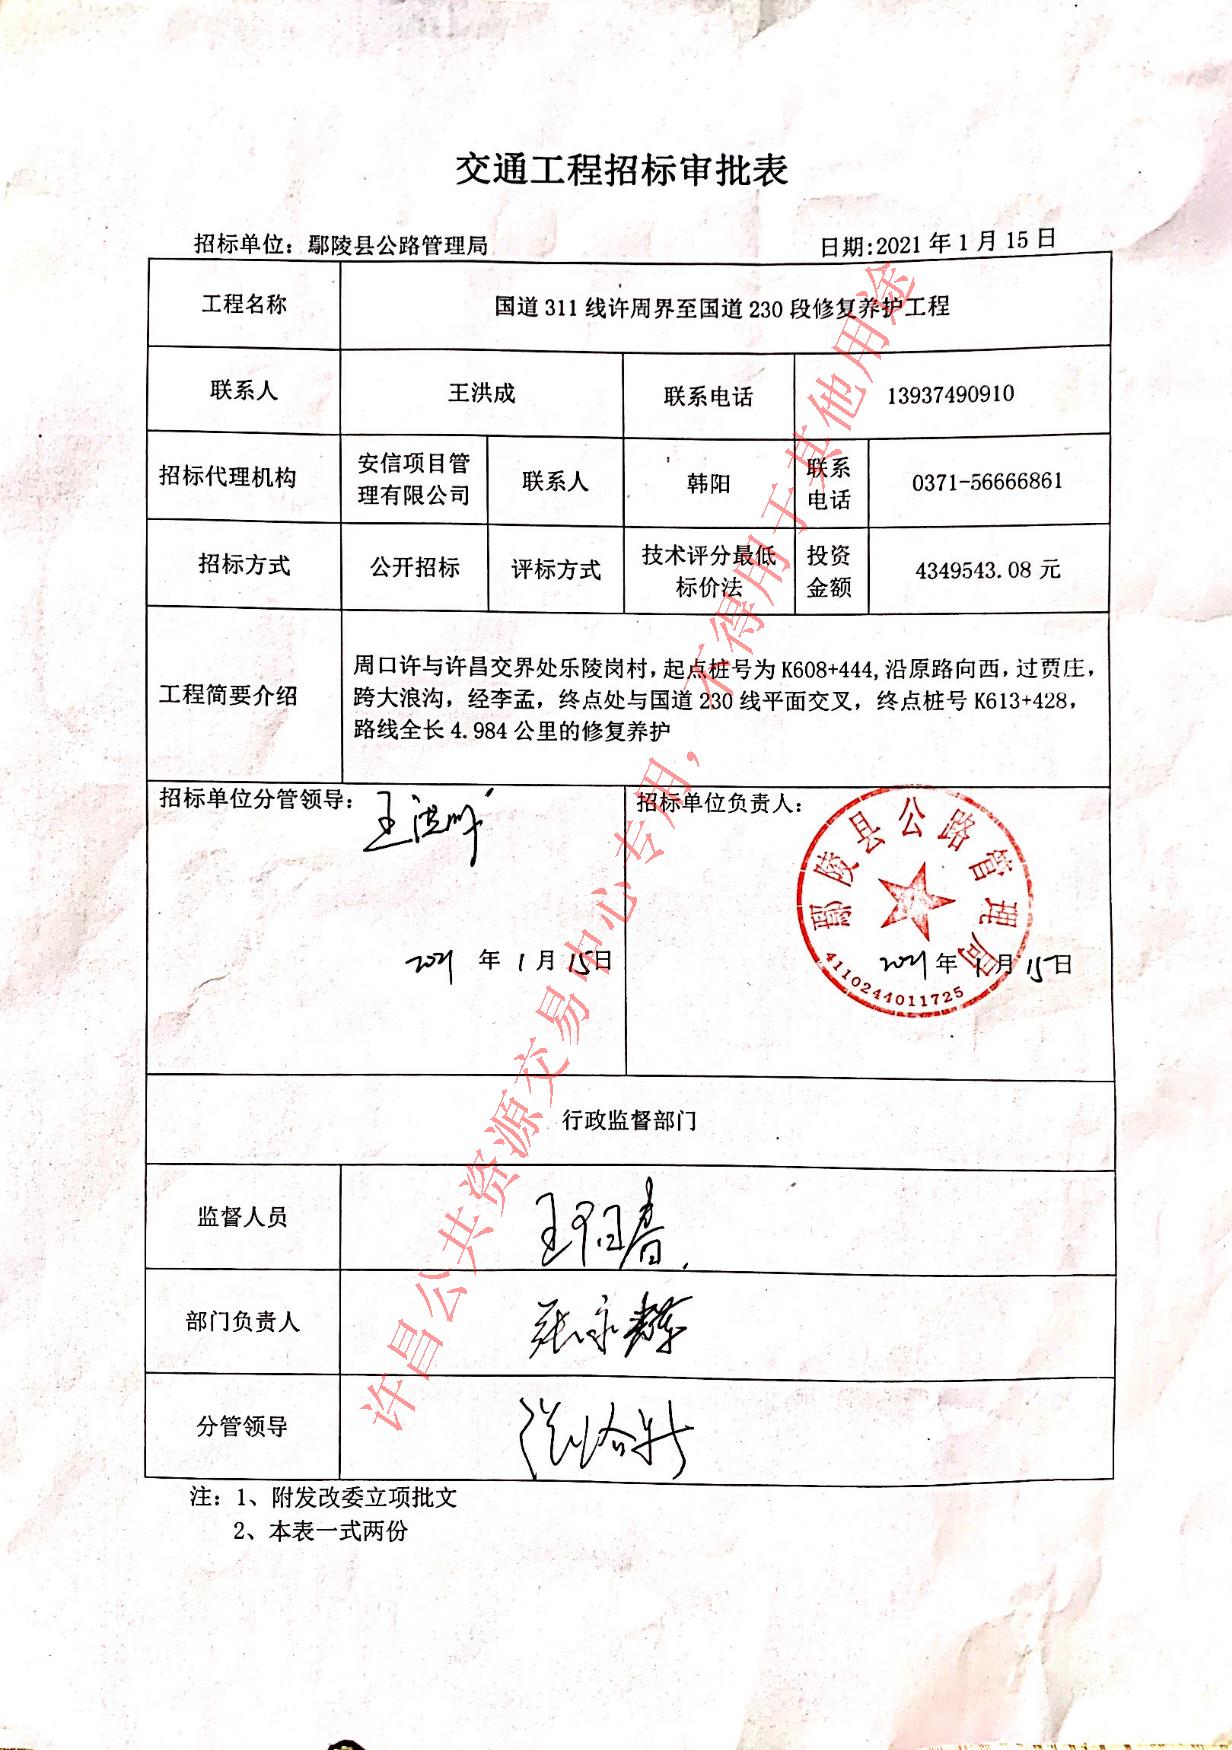 交通工程招标审批表
招标单位：鄢陵县公路管理局 日期:2021年1月15日
工程名称 国道311线许周界至国道230段修复养护工程
联系人 王洪成 联系电话 13937490910
招标代理机构 安信项目管理有限公司 联系人 韩阳 联系电话 0371-56666861
招标方式 公开招标 评标方式 技术评分最低标价法 投资金额 4349543.08元
工程简要介绍
周口许与许昌交界处乐陵岗村，起点桩号为K608+444,沿原路向西，过贾庄，
跨大浪沟，经李孟，终点处与国道230线平面交叉，终点桩号K613+428，
路线全长4.984公里的修复养护
招标单位分管领导： 招标单位负责人：
鄢陵县公路管理局
2021年1月15日 2021年1月15日
4110244011725
行政监督部门
监督人员
部门负责人
分管领导
注：1、附发改委立项批文
2、本表一式两份
许昌公共资源交易中心专用，不得用于其他用途